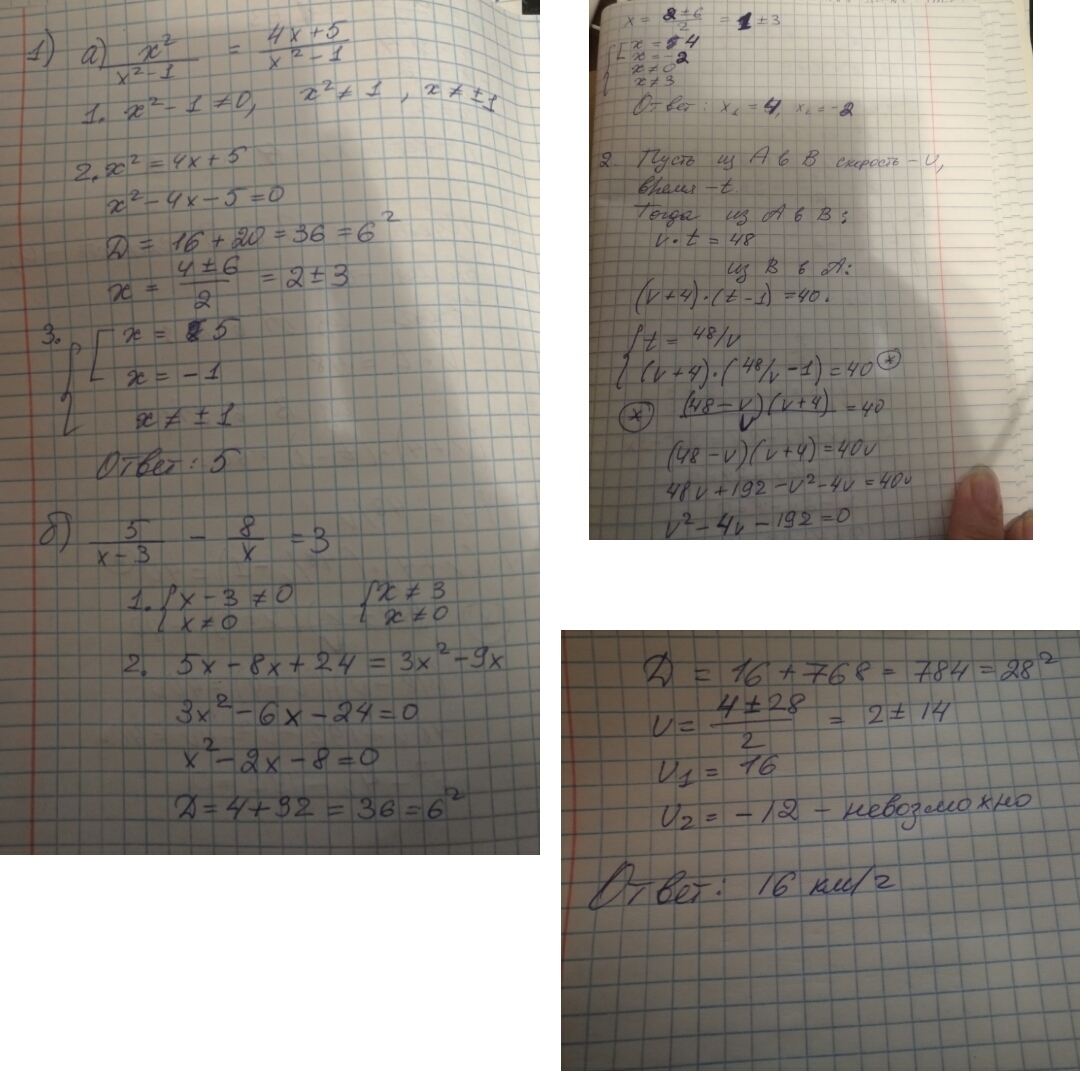 1) а) x²/(x²-1) = (4x+5)/(x²-1)
1. x²-1≠0, x²≠1, x≠±1
2. x²=4x+5
x²-4x-5=0
D = 16+20=36=6²
x = (4±6)/2 = 2±3
3. x = 5
x = -1
x≠±1
Ответ: 5
б) 5/(x-3) - 8/x = 3
1. { x-3≠0 { x≠3
x≠0 x≠0
2. 5x-8x+24=3x²-9x
3x²-6x-24=0
x²-2x-8=0
D=4+32=36=6²
x = (2±6)/2 = 1±3
x = 4
x = -2
x≠0
x≠3
Ответ: x₁=4, x₂=-2
2. Пусть из А в В скорость - v,
время - t.
Тогда из А в В:
v·t=48
из В в А:
(v+4)·(t-1)=40.
{ t = 48/v
(v+4)·(48/v-1)=40 (*)
(*) (48-v)(v+4)/v = 40
(48-v)(v+4)=40v
48v+192-v²-4v=40v
v²-4v-192=0
D = 16+768=784=28²
v = (4±28)/2 = 2±14
v₁ = 16
v₂ = -12 - невозможно
Ответ: 16 км/ч